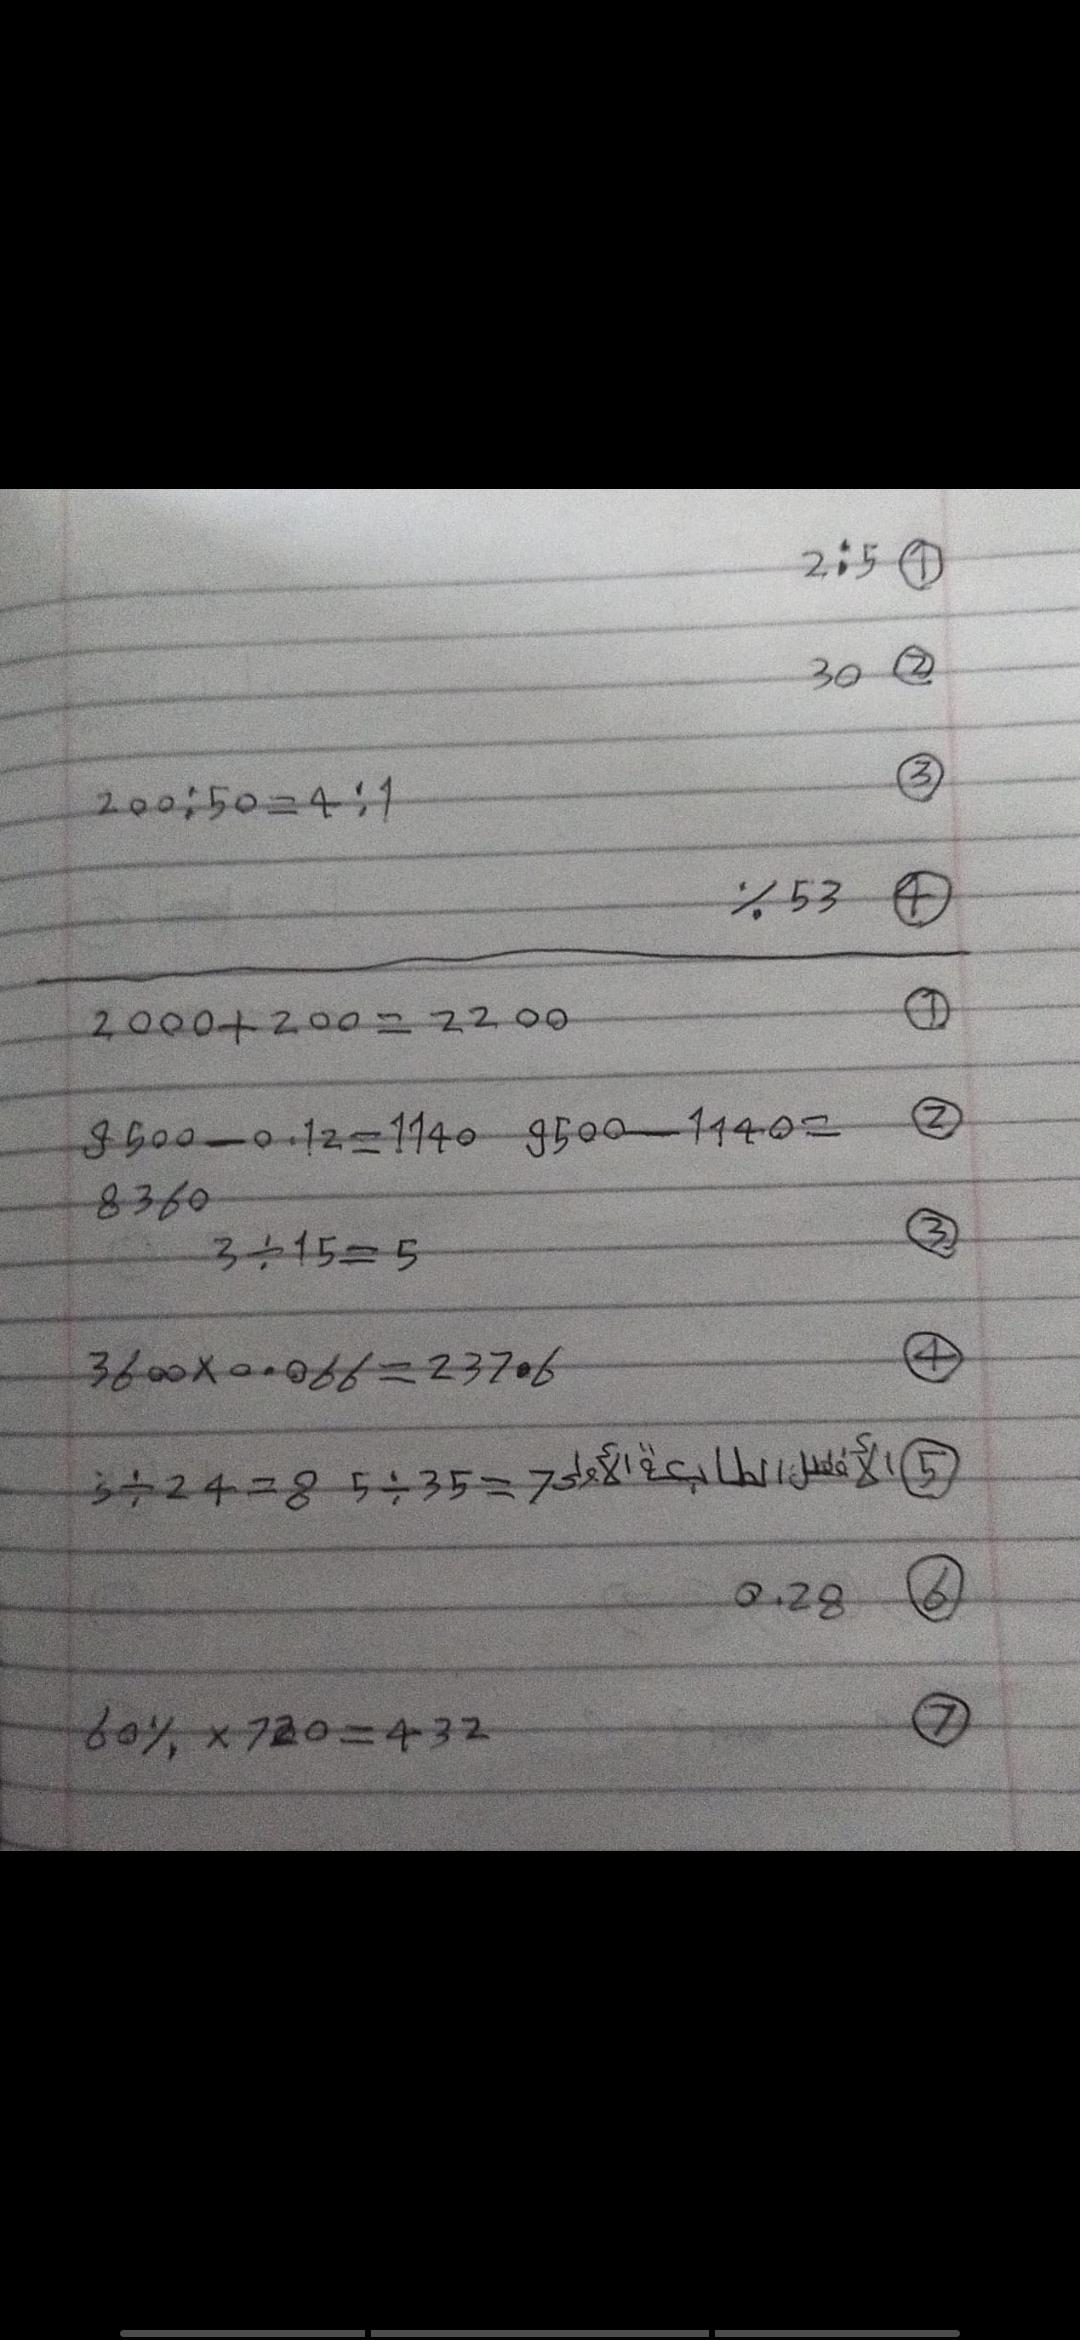 ① 2:5
② 30
③ 200:50=4:1
④ 53 ٪
① 2000+200=2200
② 9500-0.12=1140 9500-1140=
8360
③ 3÷15=5
④ 3600×0.066=237.6
⑤ الأفضل الطابعة الأولى 3÷24=8 5÷35=7
⑥ 0.28
⑦ 60% ×720=432